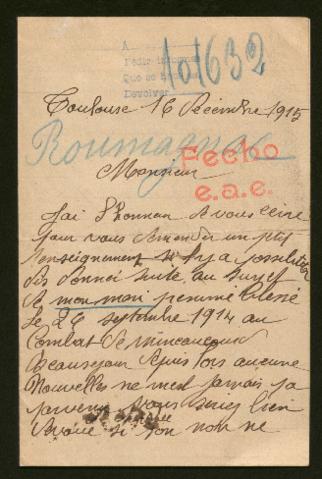 A
Pedir informe
Que se
Devolver
101632
Toulouse 16 Décembre 1915
Roumagnac
Monsieur
Fecho
e.a.e.
Jai l'honneur de vous écrire
pour vous demander un petit
renseignement si il y a possibilité
de donner suite au sujet
de mon mari présumé blessé
le 26 septembre 1914 au
Combat de mincaucourt
Beausejour depuis lors aucune
Nouvelles ne mest jamais
parvenu vous seriez bien
si son nom ne